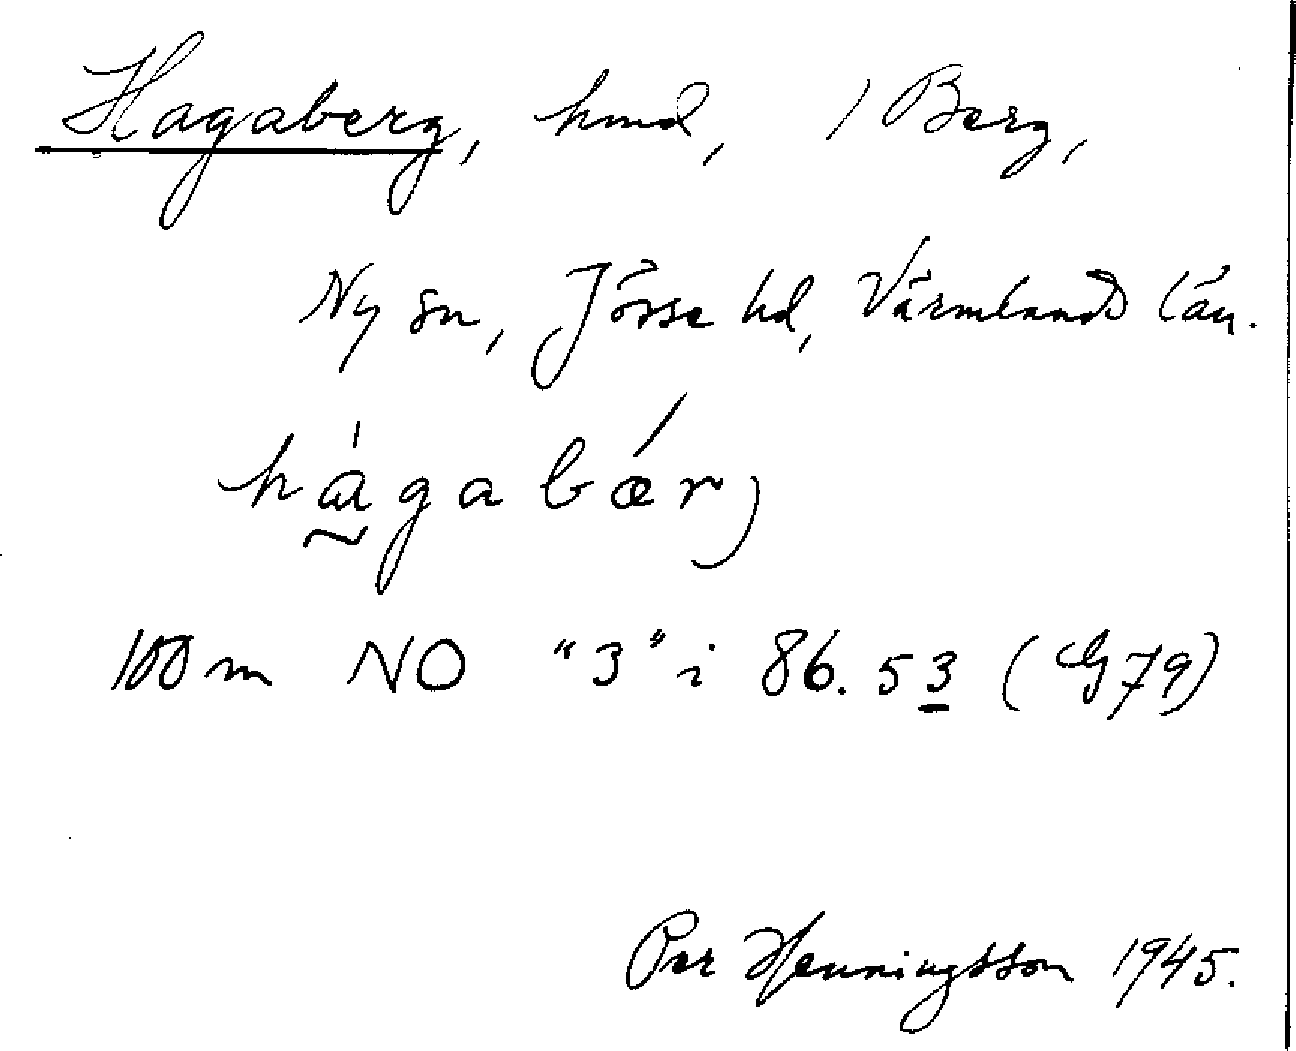 Hagaberg, hmd, / Berg,
Ny sn, Jösse hd, Värmlands län.
hágabǽrj
100 m NO "3" i 86. 53 (G79)
Per Henningsson 1945.